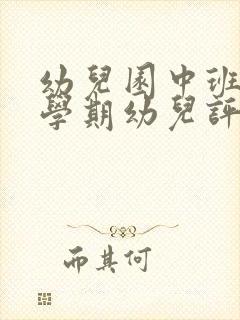 幼兒園中班
學期幼兒評
而其何